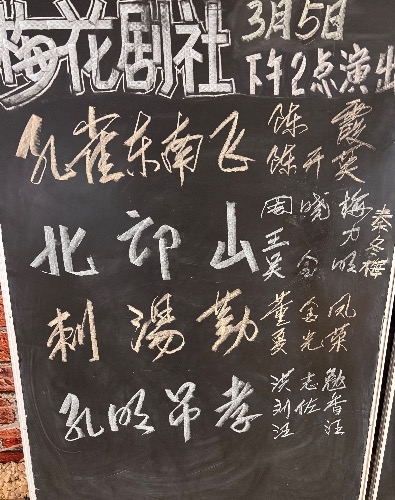 梅花剧社
3月5日
下午2点演出
孔雀东南飞
陈 霞
陈开英
北邙山
周晓梅
王 力
吴金旺
秦冬梅
刺湯勤
董金凤
夏光荣
孔明吊孝
洪志魁
刘佐香
汪 汪